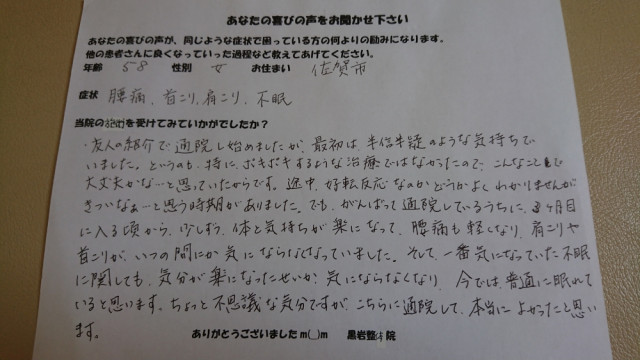 あなたの喜びの声をお聞かせ下さい
あなたの喜びの声が、同じような症状で困っている方の何よりの励みになります。
他の患者さんに良くなっていった過程など教えてあげてください。
年齢 58 性別 女 お住まい 佐賀市
症状 腰痛、首こり、肩こり、不眠
当院の を受けてみていかがでしたか？
・友人の紹介で通院し始めましたが、最初は、半信半疑のような気持ちで
いました。というのも、特に、ボキボキするような治療ではなかったので、こんなことで
大丈夫かなーと思っていたからです。途中、好転反応なのかどうかよくわかりませんが
きついなぁーと思う時期がありました。でも、がんばって通院しているうちに、3ヶ月目
に入る頃から、少しずつ、体と気持ちが楽になって、腰痛も軽くなり、肩こりや
首こりが、いつの間にか気にならなくなっていました。そして、一番気になっていた不眠
に関しても、気分が楽になったせいか、気にならなくなり、今では、普通に眠れて
いると思います。ちょっと不思議な気分ですが、こちらに通院して、本当によかったと思い
ます。
ありがとうございました m(__)m 黒岩整体院